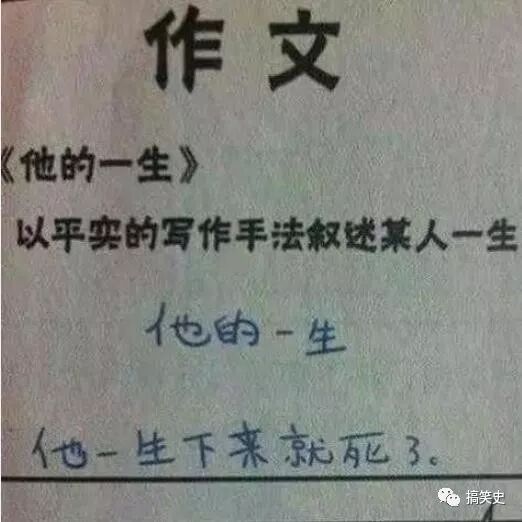 作文
《他的一生》
以平实的写作手法叙述某人一生
他的一生
他一生下来就死了。
搞笑史